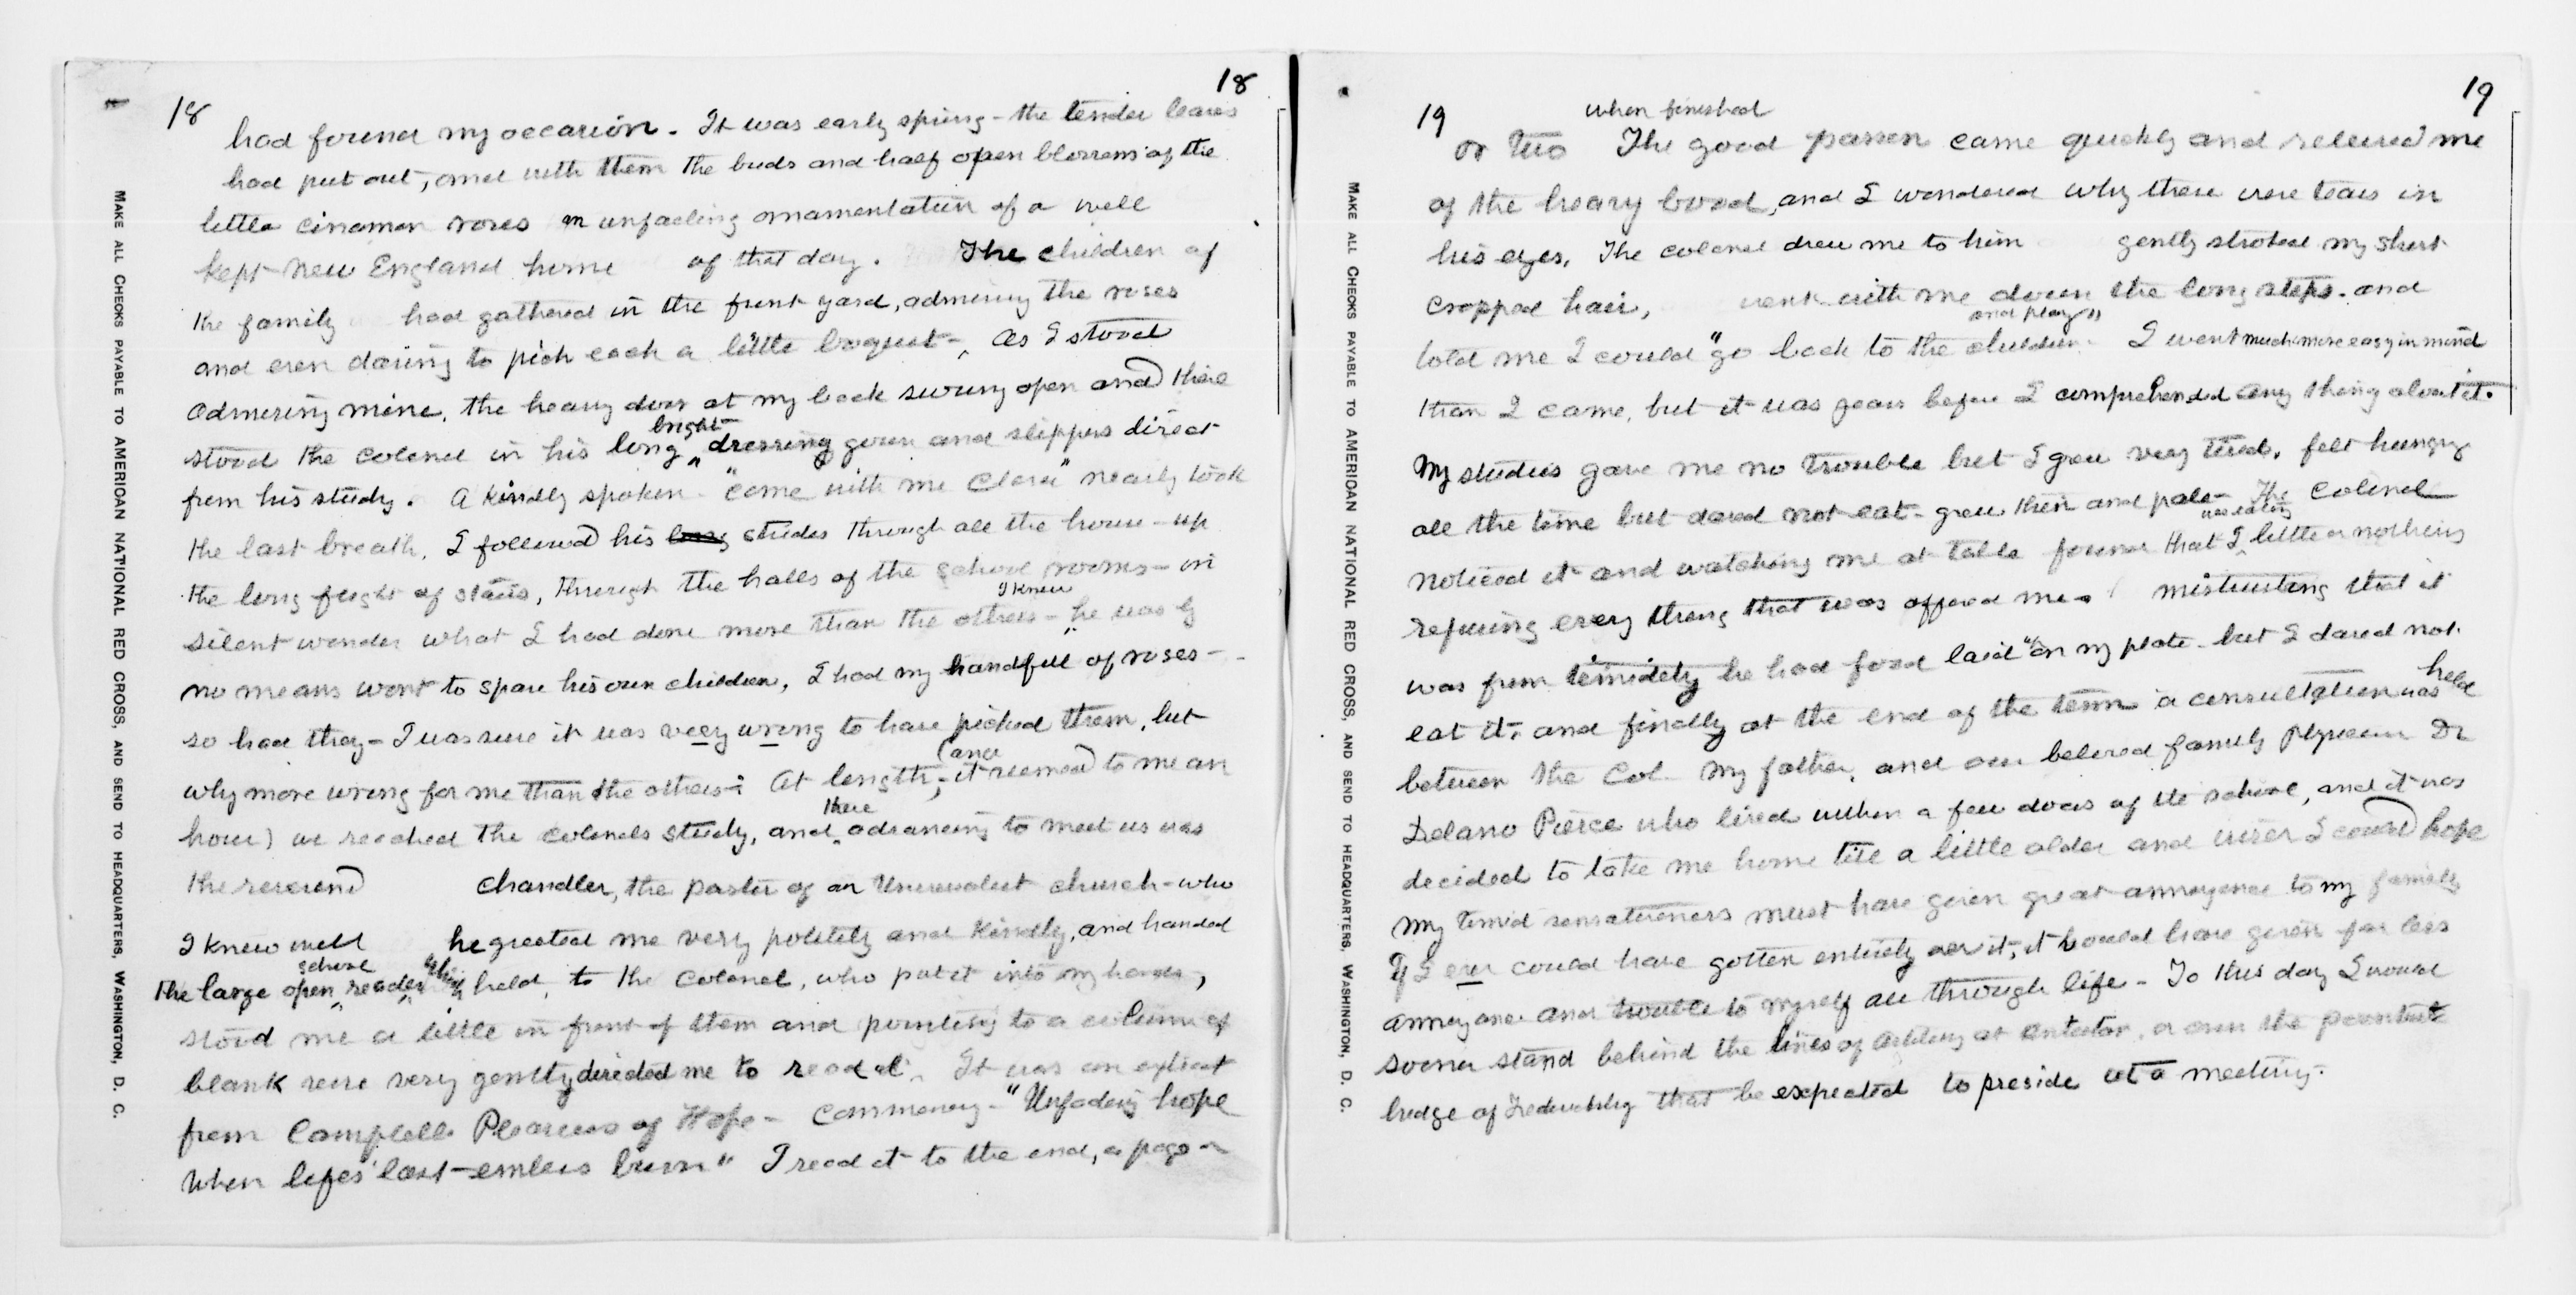 18
18
had found my occasion. It was early spring - the tender leaves
had put out, and with them the buds and half open blossoms of the
little cinamon roses an unfading ornamentation of a well
kept New England home of that day. The children of
the family had gathered in the front yard, admiring the roses
and even daring to pick each a little boquet -, As I stood
admiring mine, the heavy door at my back swung open and there
bright
stood the colonel in his long dressing gown and slippers direct
from his study. A kindly spoken "come with me Clara" nearly took
the last breath. I followed his long strides through all the house - up
the long flight of stairs, through the halls of the school rooms - in
I knew
silent wonder what I had done more than the others - he was by
no means wont to spare his own children, I had my handfull of roses -
so had they - I was sure it was very wrong to have picked them, but
why more wrong for me than the others -: At length, (and it seemed to me an
there
hour) we reached the colonels study, and advancing to meet us was
the reverend Chandler, the pastor of our Universalist church - who
I knew well he greeted me very politely and kindly, and handed
school
the large open reader which he held, to the Colonel, who put it into my hands,
stood me a little in front of them and pointing to a column of
blank verse very gently directed me to read it. It was an extract
from Campbells Pleasures of Hope - commencing - "Unfading hope
when lifes last embers burn" I read it to the end, a page
MAKE ALL CHECKS PAYABLE TO AMERICAN NATIONAL RED CROSS, AND SEND TO HEADQUARTERS, WASHINGTON, D. C.
19
19
when finished
or two The good passon came quickly and relieved me
of the heavy book, and I wondered why there were tears in
his eyes. The colonel drew me to him gently stroked my short
cropped hair, went with me down the long steps. and
and play"
told me I could "go back to the children I went much more easy in mind
than I came, but it was years before I comprehended any thing about it.
My studies gave me no trouble but I grew very tired, felt hungry
all the time but dared not eat - grew thin and pale - The Colonel
was eating
noticed it and watching me at table found that I little or nothing
refusing every thing that was offered me. mistrusting that it
was from timidity he had food laid on my plate - but I dared not
eat it, and finally at the end of the term a consultation was held
between the Col. my father, and our beloved family physician Dr
Delano Pierce who lived within a few doors of the school, and it was
decided to take me home till a little older and wiser I could hope
My timid sensativeness must have given great annoyance to my family
If I ever could have gotten entirely over it, it would have given far less
annoyance and trouble to myself all through life - To this day I would
sooner stand behind the lines of artillery at Antietam, or even the pontoon
bridge of Fredericksburg that be expected to preside at a meeting.
MAKE ALL CHECKS PAYABLE TO AMERICAN NATIONAL RED CROSS, AND SEND TO HEADQUARTERS, WASHINGTON, D. C.